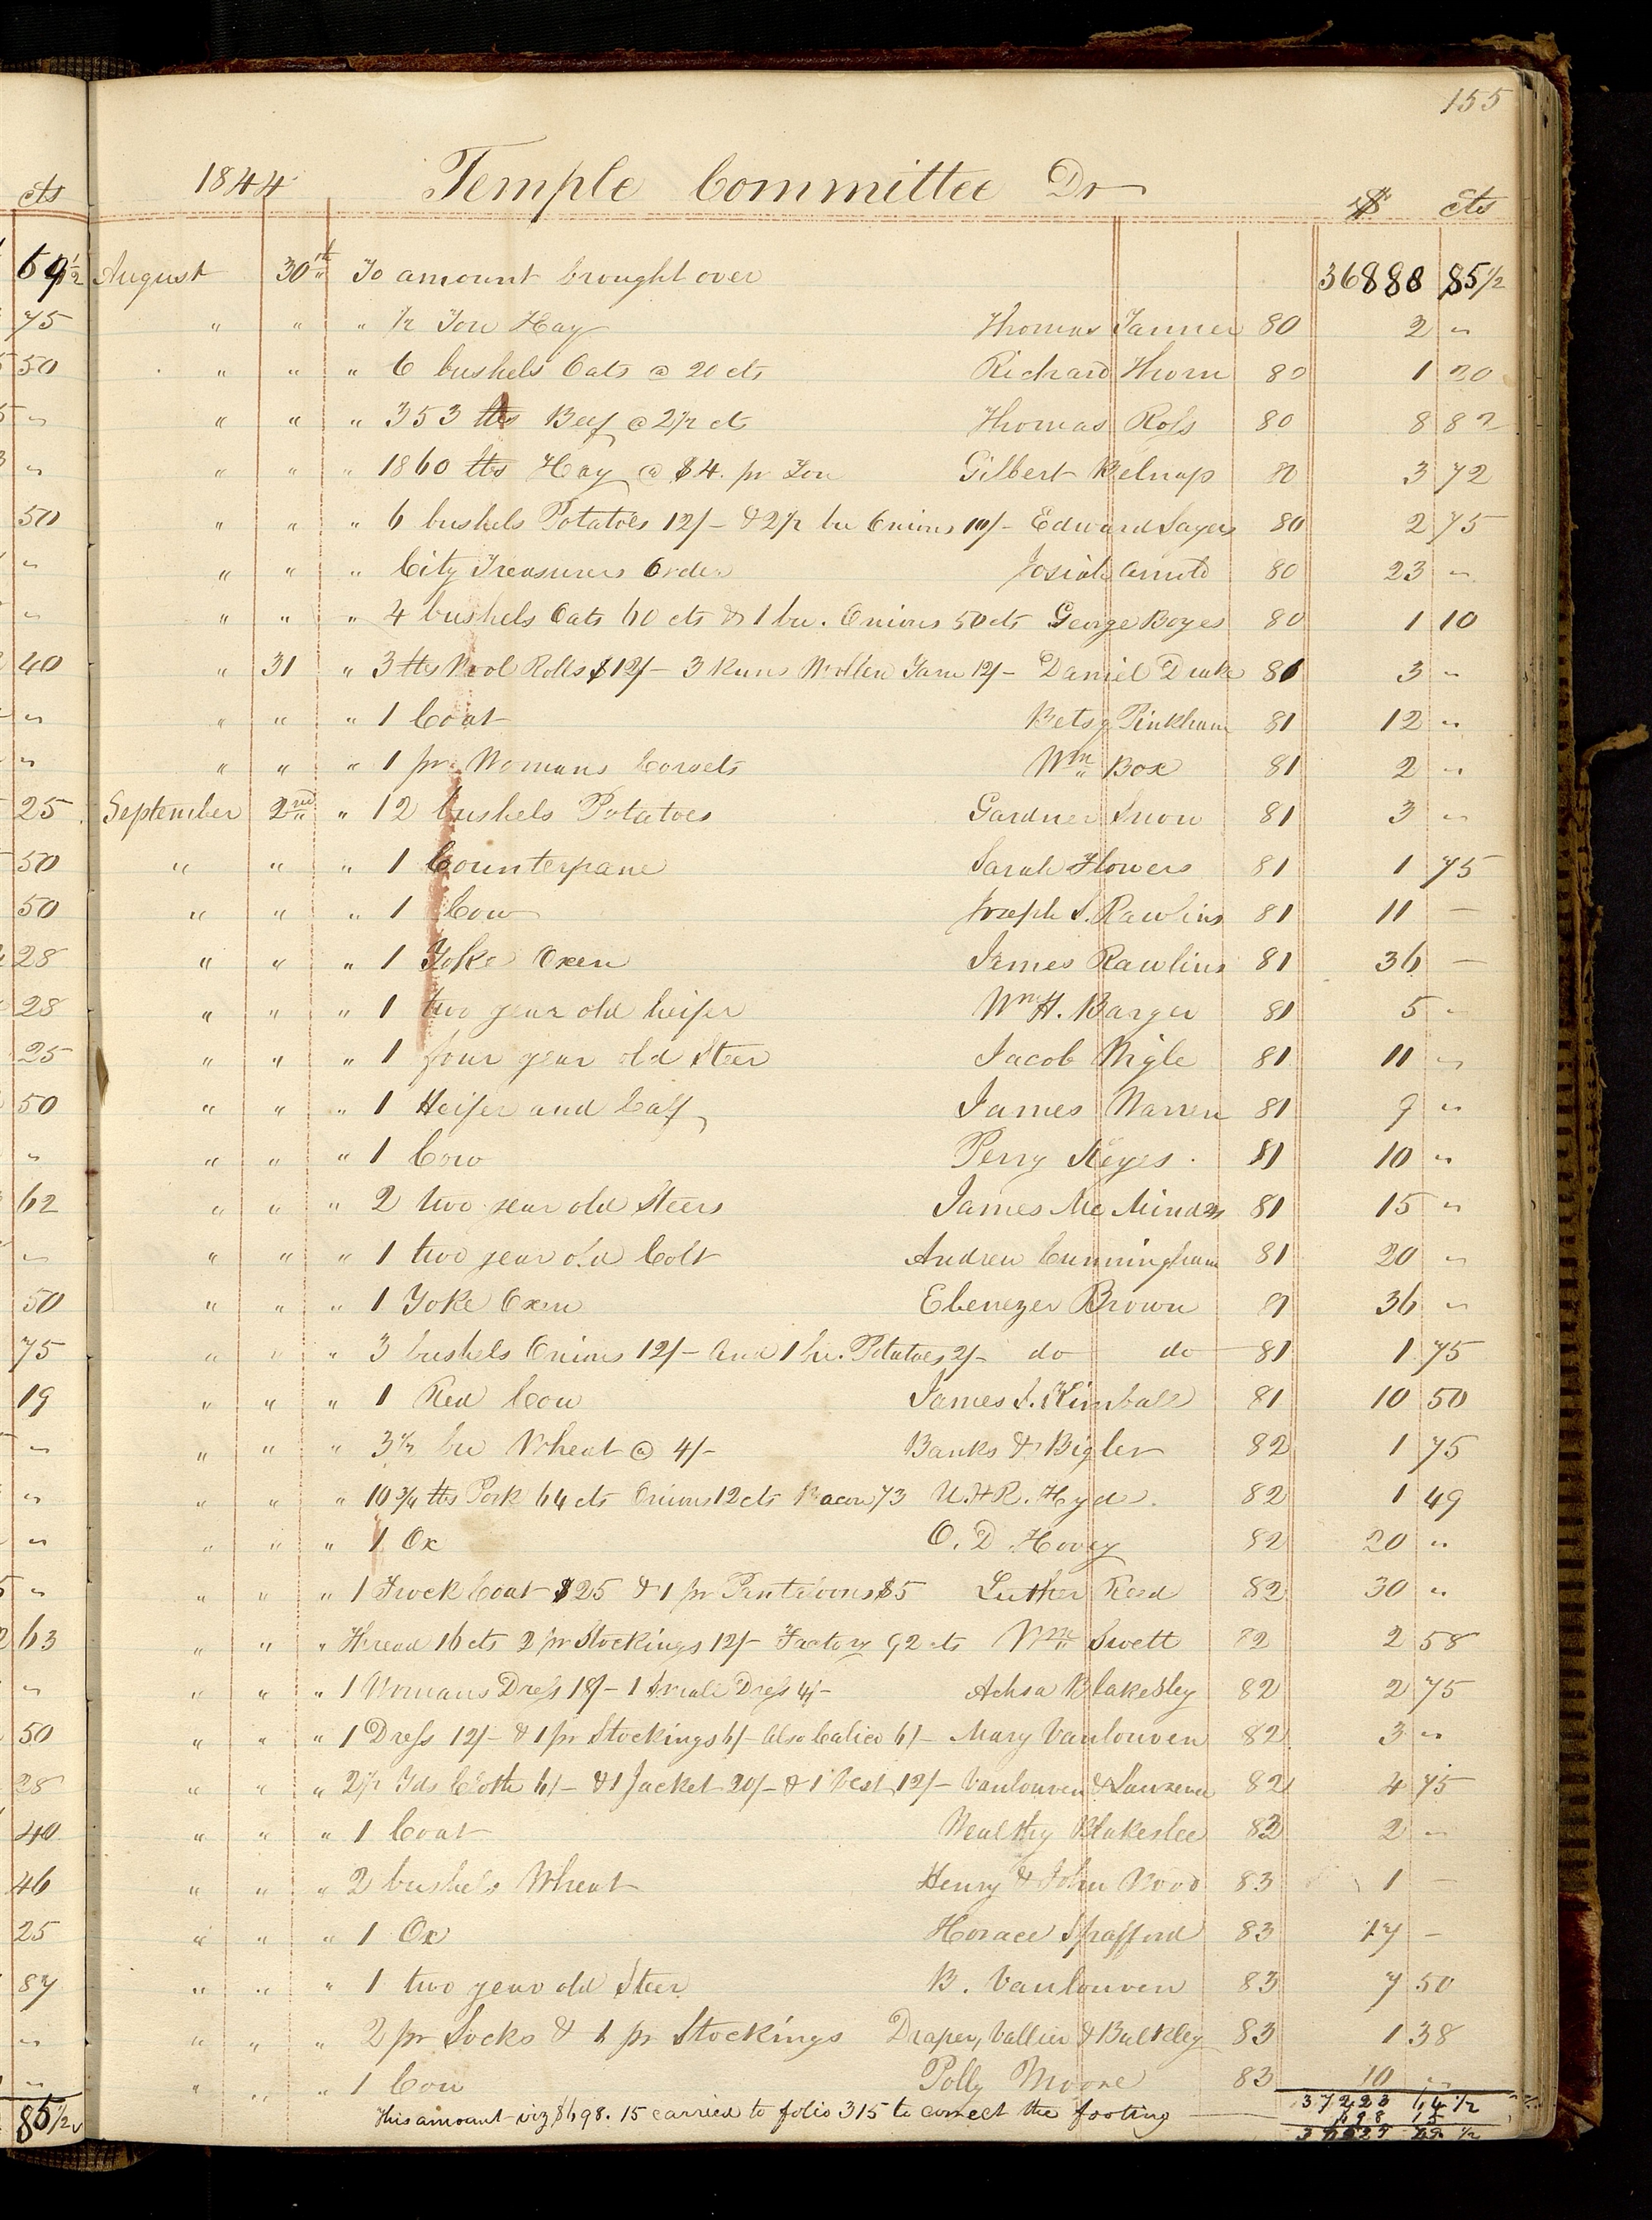 155
1844 Temple Committee Dr $ cts
August 30th To amount brought over 36888 85 1/2
" " " 1/2 Ton Hay Thomas Tanner 80 2 "
" " " 6 bushels Oats @ 20 cts Richard Thorn 80 1 20
" " " 353 lbs Beef @ 2 1/2 cts Thomas Ross 80 8 82
" " " 1860 lbs Hay @ $4. pr Ton Gilbert Belnap 80 3 72
" " " 6 bushels Potatoes 12/- & 2 1/2 bu Onions 10/- Edward Sayers 80 2 75
" " " City Treasurers Order Josiah Arnold 80 23 "
" " " 4 bushels Oats 60 cts & 1 bu. Onions 50 cts George Boyes 80 1 10
" 31 " 3 lbs Wool Rolls $12/- 3 Runs Wollen Yarn 12/- Daniel Drake 81 3 "
" " " 1 Coat Betsy Pinkham 81 12 "
" " " 1 pr Womans Corsets Wm Box 81 2 "
September 2nd " 12 bushels Potatoes Gardner Snow 81 3 "
" " " 1 Counterpane Sarah Flowers 81 1 75
" " " 1 Cow Joseph S. Rawlins 81 11 —
" " " 1 Yoke Oxen James Rawlins 81 36 —
" " " 1 two year old heifer Wm H. Barger 81 5 "
" " " 1 four year old Steer Jacob Wigle 81 11 "
" " " 1 Heifer and Calf James Warren 81 9 "
" " " 1 Cow Perry Keyes 81 10 "
" " " 2 two year old Steers James Mc 81 15 "
" " " 1 two year old Colt Andrew Cunningham 81 20 "
" " " 1 Yoke Oxen Ebenezer Brown 81 36 "
" " " 3 bushels Onions 12/- And 1 bu. Potatoes 2/- do do 81 1 75
" " " 1 Red Cow James S. Kimball 81 10 50
" " " 3 1/2 bu Wheat @ 4/- Banks & Bigler 82 1 75
" " " 10 3/4 lbs Pork 64 cts Onions 12 cts Bacon 73 U. & R. Hyde. 82 1 49
" " " 1 Ox O. D. Hovey 82 20 "
" " " 1 Frock Coat $25 & 1 pr Pantaloons $5 Luther Reed 82 30 "
" " " Thread 16 cts 2 pr Stockings 12/- Factory 92 cts Wm Swett 82 2 58
" " " 1 Womans Dress 18/- 1 Small Dress 4/- Achsa Blakesley 82 2 75
" " " 1 Dress 12/- & 1 pr Stockings 6/- Also Calico 6/- Mary Vanlouven 82 3 "
" " " 2 1/2 Yds Cloth 6/- & 1 Jacket 20/- & 1 Vest 12/- Vanlouven & 82 4 75
" " " 1 Coat Wealthy Blakeslee 82 2 "
" " " 2 bushels Wheat Henry & John Wood 83 1 —
" " " 1 Ox Horace Spafford 83 17 —
" " " 1 two year old Steer B. Vanlouven 83 7 50
" " " 2 pr Socks & 1 pr Stockings Draper, Vallier & Bulkley 83 1 38
" " " 1 Cow Polly Moore 83 10 "
37223 64 1/2
This amount viz $698.15 carried to folio 315 to correct the footing 698 15
cts
69 1/2
75
50
"
"
50
"
"
40
"
"
25
50
50
28
28
25
50
"
62
"
50
75
19
"
"
"
"
63
"
50
28
40
46
25
87
"
"
85 1/2